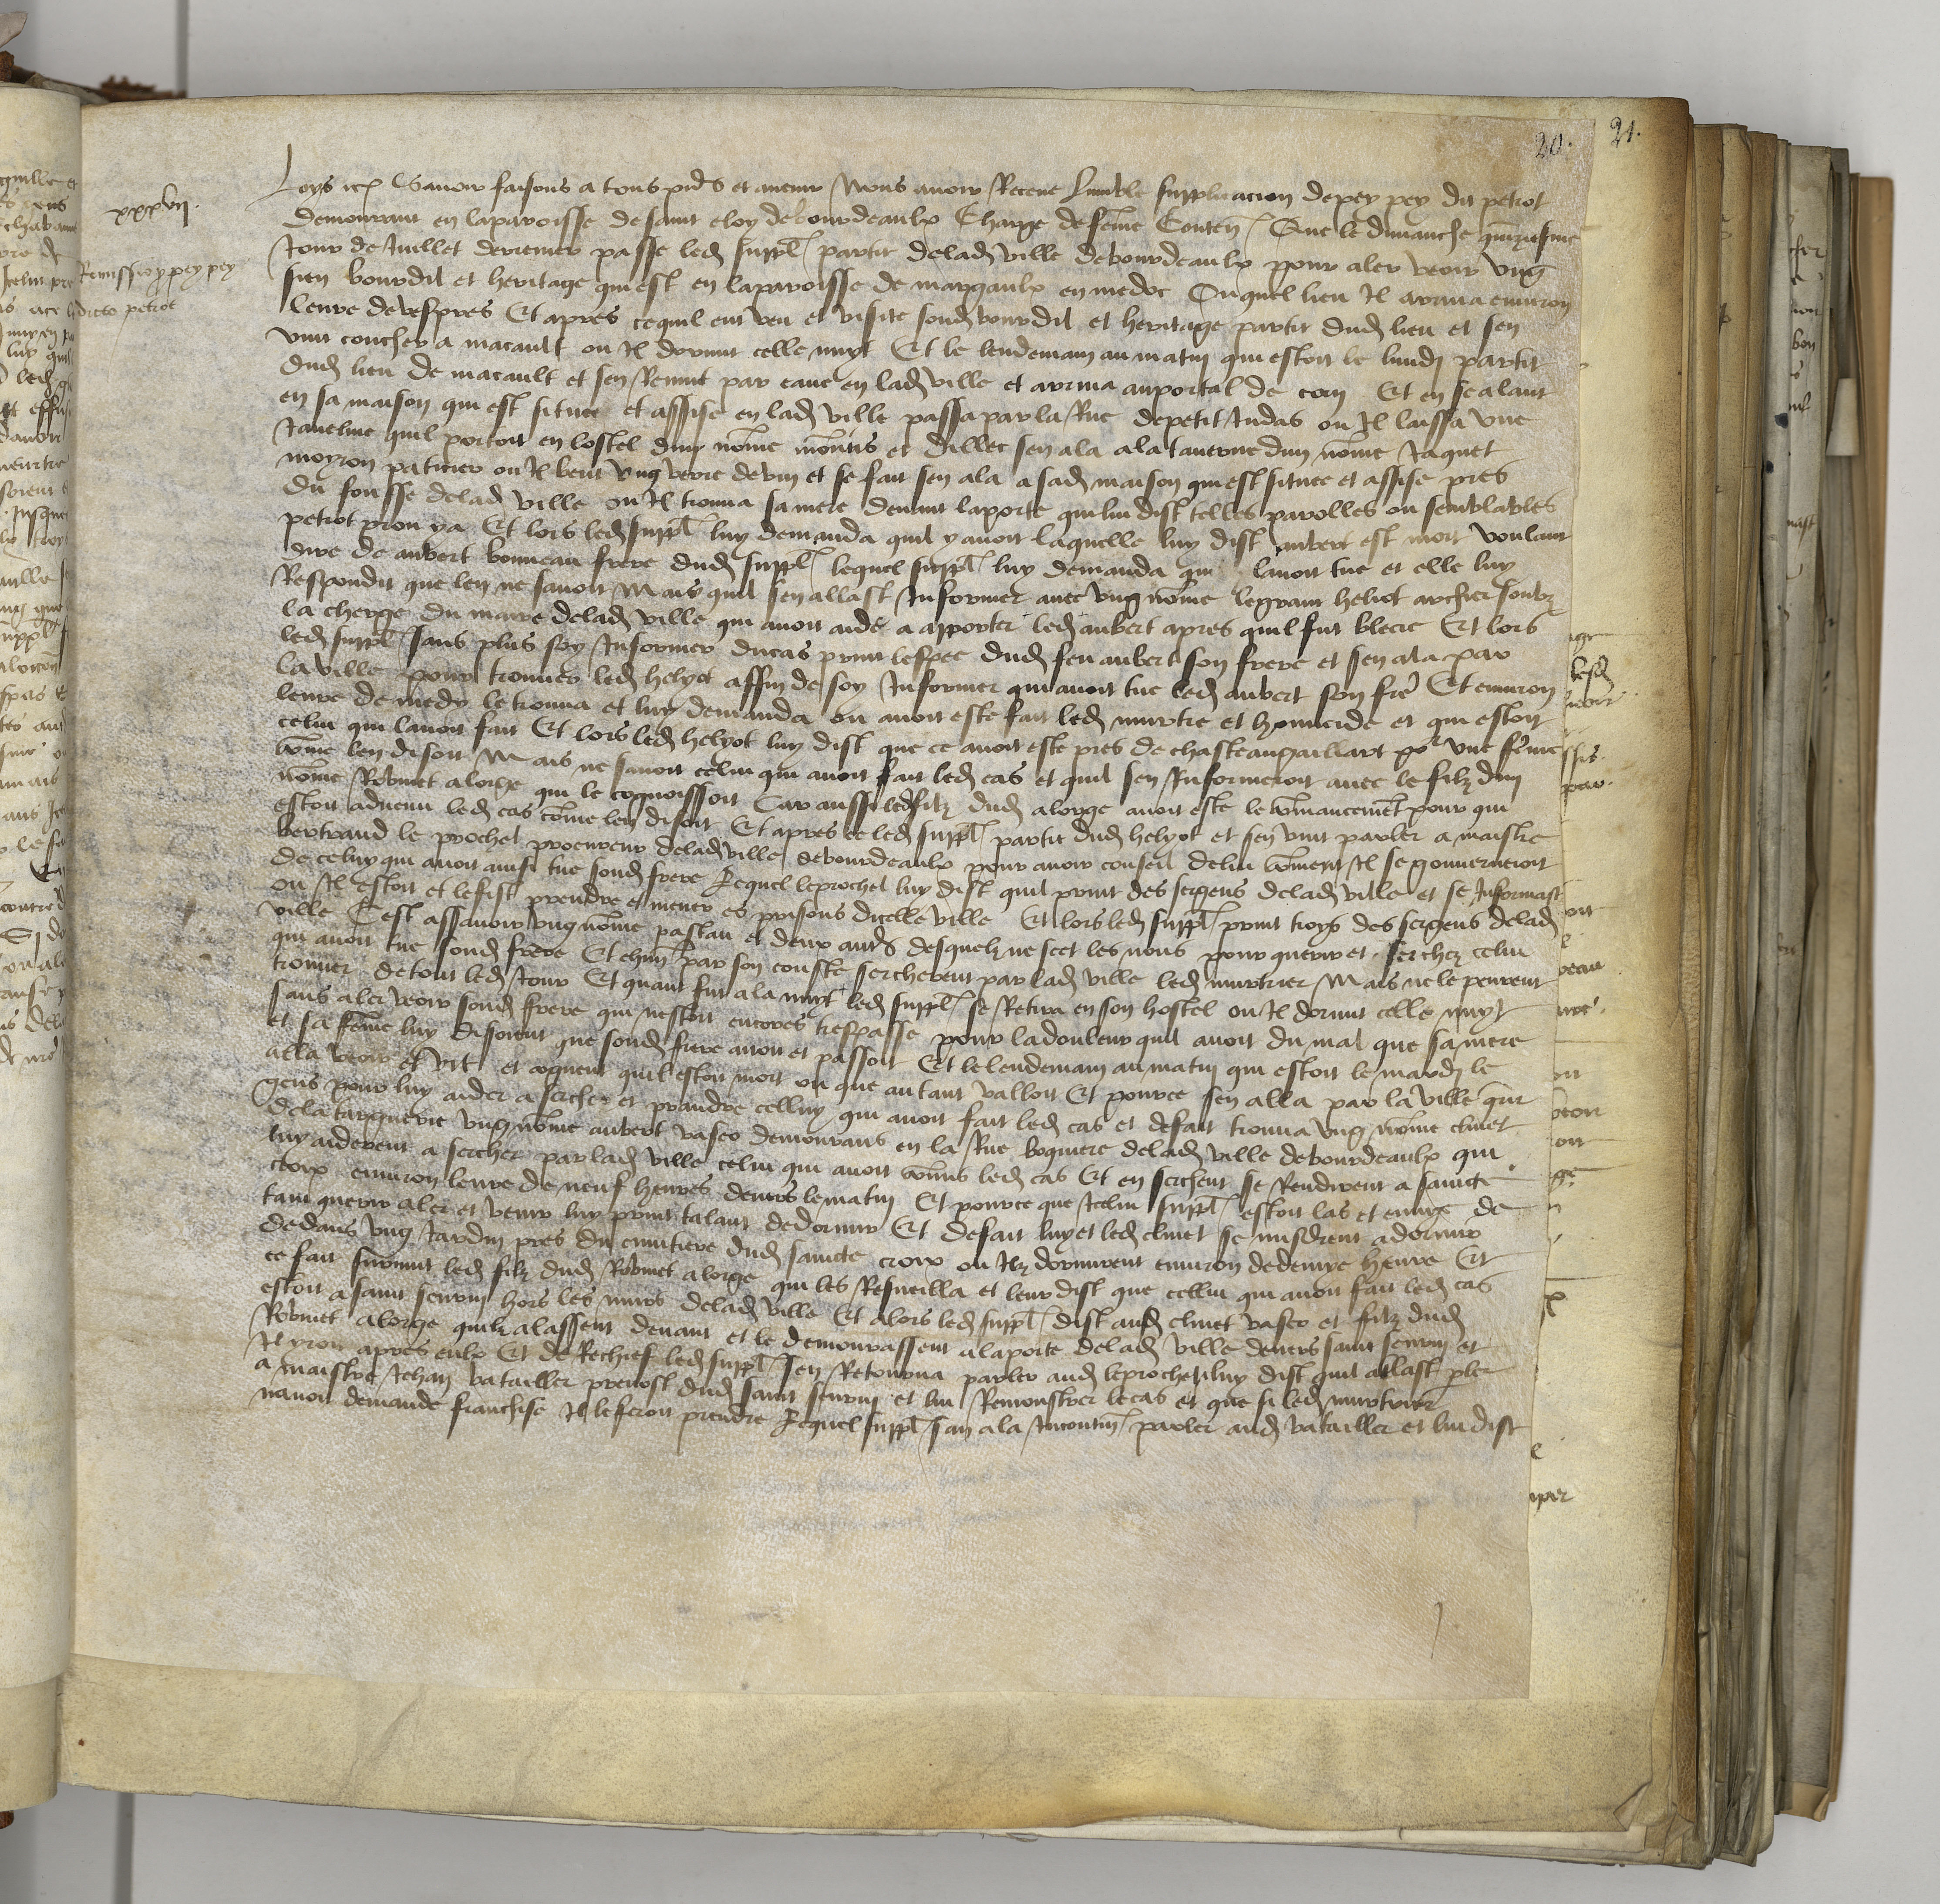 20.
21.
xxxvii.
Remissio p pey pey
dicto petrot
Loys etc Savoir faisons a tous pns et avenir Nous avoir Receue lumble supplicacion de pey pey dit petrot
demourant en la parroisse de saint eloy de bourdeaulx Charge de feme Conten Que le dimanche quinziesme
Jour de Juillet derrenier passe led suppl partit de lad ville de bourdeaulx pour aler veoir ung
sien bourdil et heritage qui est en la parroisse de margaulx en medoc Ouquel lieu Il arriva environ
leure de vespres Et apres ce quil eut veu et visite sond bourdil et heritage partit dud lieu et sen
vint coucher a macault ou Il dormit celle nuyt Et le lendemain au matin qui estoit le lundi partit
dud lieu de macault et sen Revint par eaue en lad ville et arriva au portal de corn Et en se alant
en sa maison qui est situee et assise en lad ville passa par la Rue de petit Judas ou Il laissa une
Javeline quil portoit en lostel dun nome montis et dillec sen ala a la taverne dun nome Jaquet
moyron paticier ou Il beut ung verre de vin et se fait sen ala a sad maison qui est situee et assise pres
du fousse de lad ville ou Il trouva sa mere devant la porte qui lui dist telles parolles ou semblables
petrot prou ya Et lors led suppl luy demanda quil y avoit laquelle luy dist aubert est mort voulant
dire de aubert bonneau frere dud suppl lequel suppl luy demanda qui lavoit tue et elle luy
Respondit que len ne savoit Mais quil sen allast Informer avec ung nome le grant heliot archier soubz
la cherge du maire de lad ville qui avoit aide a apporter led aubert apres quil fut blecie Et lors
led suppl sans plus soy Informer du cas print lespee dud feu aubert son frere et sen ala par
la ville pour trouver led helyot affin de soy Informer qui avoit tue led aubert son fre Et environ
leure de medy le trouva et luy demanda ou avoit este fait led murtre et homicide et qui estoit
celui qui lavoit fait Et lors led helyot luy dist que ce avoit este pres de chasteaugaillart po une feme
come len disoit Mais ne savoit celui qui avoit fait led cas et quil sen Informeroit avec le filz dun
nome Robinet alorge qui le cognoissoit Car aussi led filz dud alorge avoit este le comancemet pour qui
estoit advenu led cas come len disoit Et apres ce led suppl partit dud helyot et sen vint parler a maistre
bertrand le prochet procureur de lad ville de bourdeaulx pour avoir conseil de lui coment Il se gouverneroit
de celuy qui avoit ainsi tue sond frere Lequel le prochet luy dist quil print des sergens de lad ville et se Informast
ou Il estoit et le fist prendre et mener es prisons dicelle ville Et lors led suppl print troys des sergens de lad
ville Cest assavoir ung nome paslau et deux autrs desquelz ne scet les noms pour querir et sercher celui
qui avoit tue sond frere Et chun par son couste sercherent par lad ville led murtrier Mais ne le peurent
trouver de tout led Jour Et quant fut a la nuyt led suppl se Retira en son hostel ou Il dormit celle nuyt
sans aler veoir sond frere qui nestoit encores trespasse pour la douleur quil avoit du mal que sa mere
et sa feme luy disoient que sond frere avoit et passoit Et le lendemain au matin qui estoit le mardi le
alla veoir et vit et cogneut quil estoit mort ou que autant valloit Et pource sen alla par la ville querir
gens pour luy aider a sercher et prandre celluy qui avoit fait led cas et de fait trouva ung nome clinet
de la targuerie ung nome aubert vasco demourans en la Rue boquiere de lad ville de bourdeaulx qui
luy aiderent a sercher par lad ville celui qui avoit comis led cas Et en serchent se Rendirent a saincte
croix environ leure de neuf heures devers le matin Et pource que Icelui suppl estoit las et ennuye de
tant querir aler et venir luy print talant de dormir Et de fait luy et led clinet se misdrent a dormir
dedans ung Jardin pres du cimitiere dud saincte croix ou Ilz dormirent environ de demye heure Et
ce fait survint led filz dud Robinet alorge qui les Resveilla et leur dist que cellui qui avoit fait led cas
estoit a saint seurin hors les murs de lad ville Et alors led suppl dist ausd clinet vasco et filz dud
Robinet alorge quilz alassent devant et le demourassent a la porte de lad ville devers saint seurin et
Il yroit apres eulx Et de Rechief led suppl sen Retourna parler aud le prochet luy dist quil allast pler
a maistre Jehan batailler prevost dud saint seurin et lui Remonstrer le cas et que si led murtrier
navoit demande franchise Il le feroit prendre Lequel suppl san ala Incontin parler aud batailler et lui dist